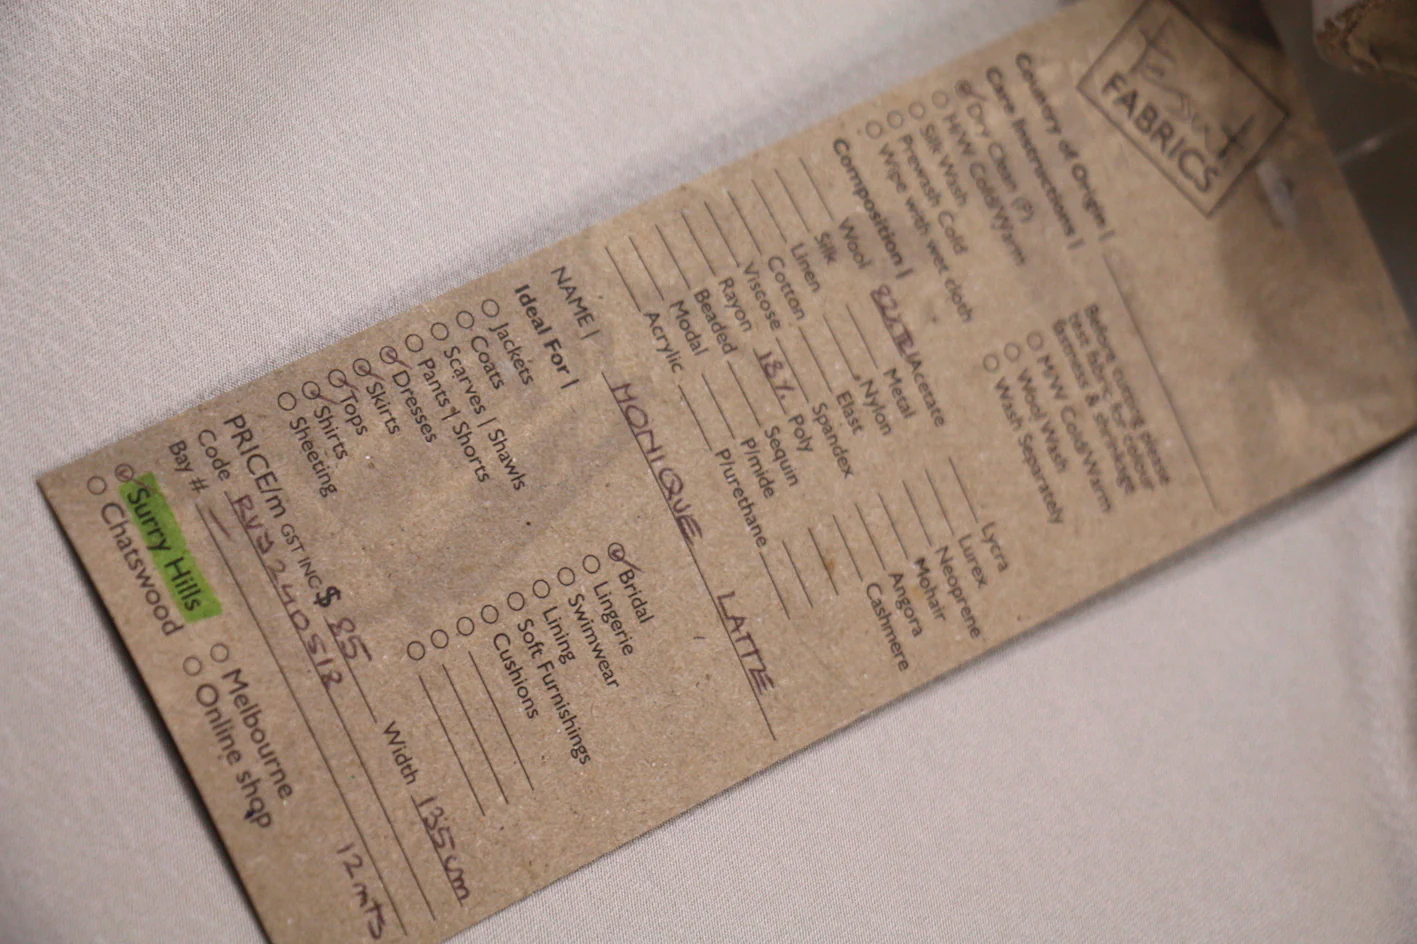 FABRICS
Country of Origin |
Care Instructions |
Dry Clean (P)
H/W Cold/Warm
Silk Wash
Prewash Cold
Wipe with wet cloth
Before cutting please
test fabric for colour
fastness & shrinkage
M/W Cold/Warm
Wool Wash
Wash Separately
Composition |
Wool
Silk
Linen
Cotton
Viscose
Rayon
Beaded
Modal
Acrylic
Acetate
Metal
Nylon
Elast
Spandex
18% Poly
Sequin
P/mide
P/urethane
Lycra
Lurex
Neoprene
Mohair
Angora
Cashmere
NAME | MONIQUE LATTE
Ideal For |
Jackets
Coats
Scarves | Shawls
Pants | Shorts
Dresses
Skirts
Tops
Shirts
Sheeting
Bridal
Lingerie
Swimwear
Lining
Soft Furnishings
Cushions
PRICE/m GST INC $ 85 Width 135cm
Code
Bay # 12 mts
Surry Hills
Chatswood
Melbourne
Online shop